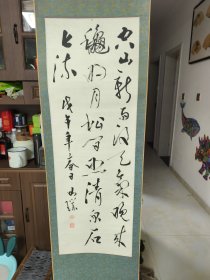 空山新雨后天气晚来
秋明月松间照清泉石
上流
戊午年春日